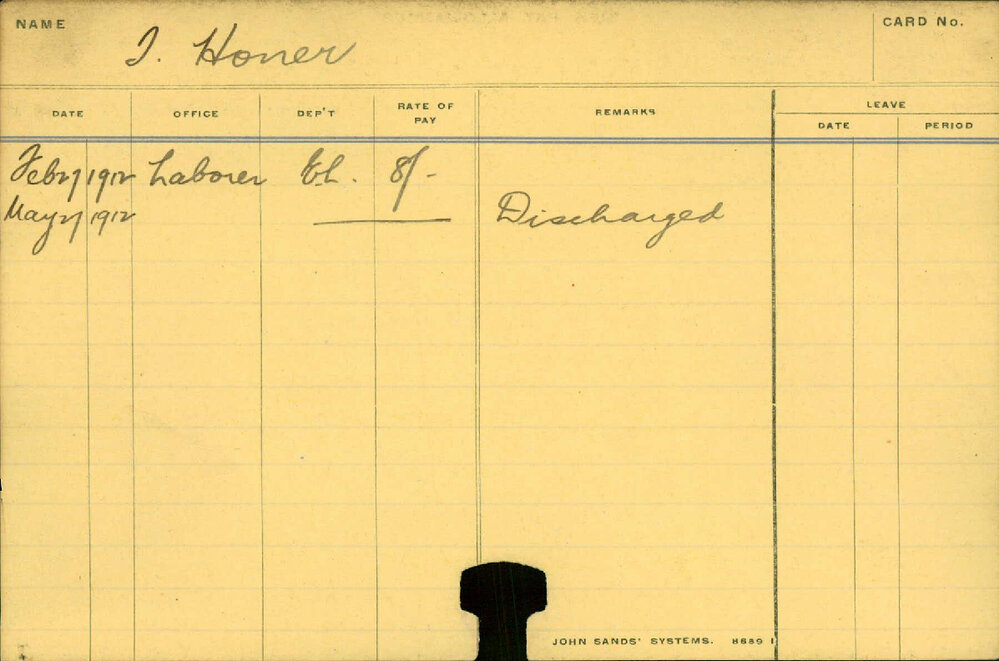 NAME
J. Honer
CARD No.
DATE OFFICE DEP'T RATE OF PAY REMARKS LEAVE
DATE PERIOD
Feb 27/1912 Laborer El. 8/-
May 2/1912 Discharged
JOHN SANDS' SYSTEMS. 8689 1